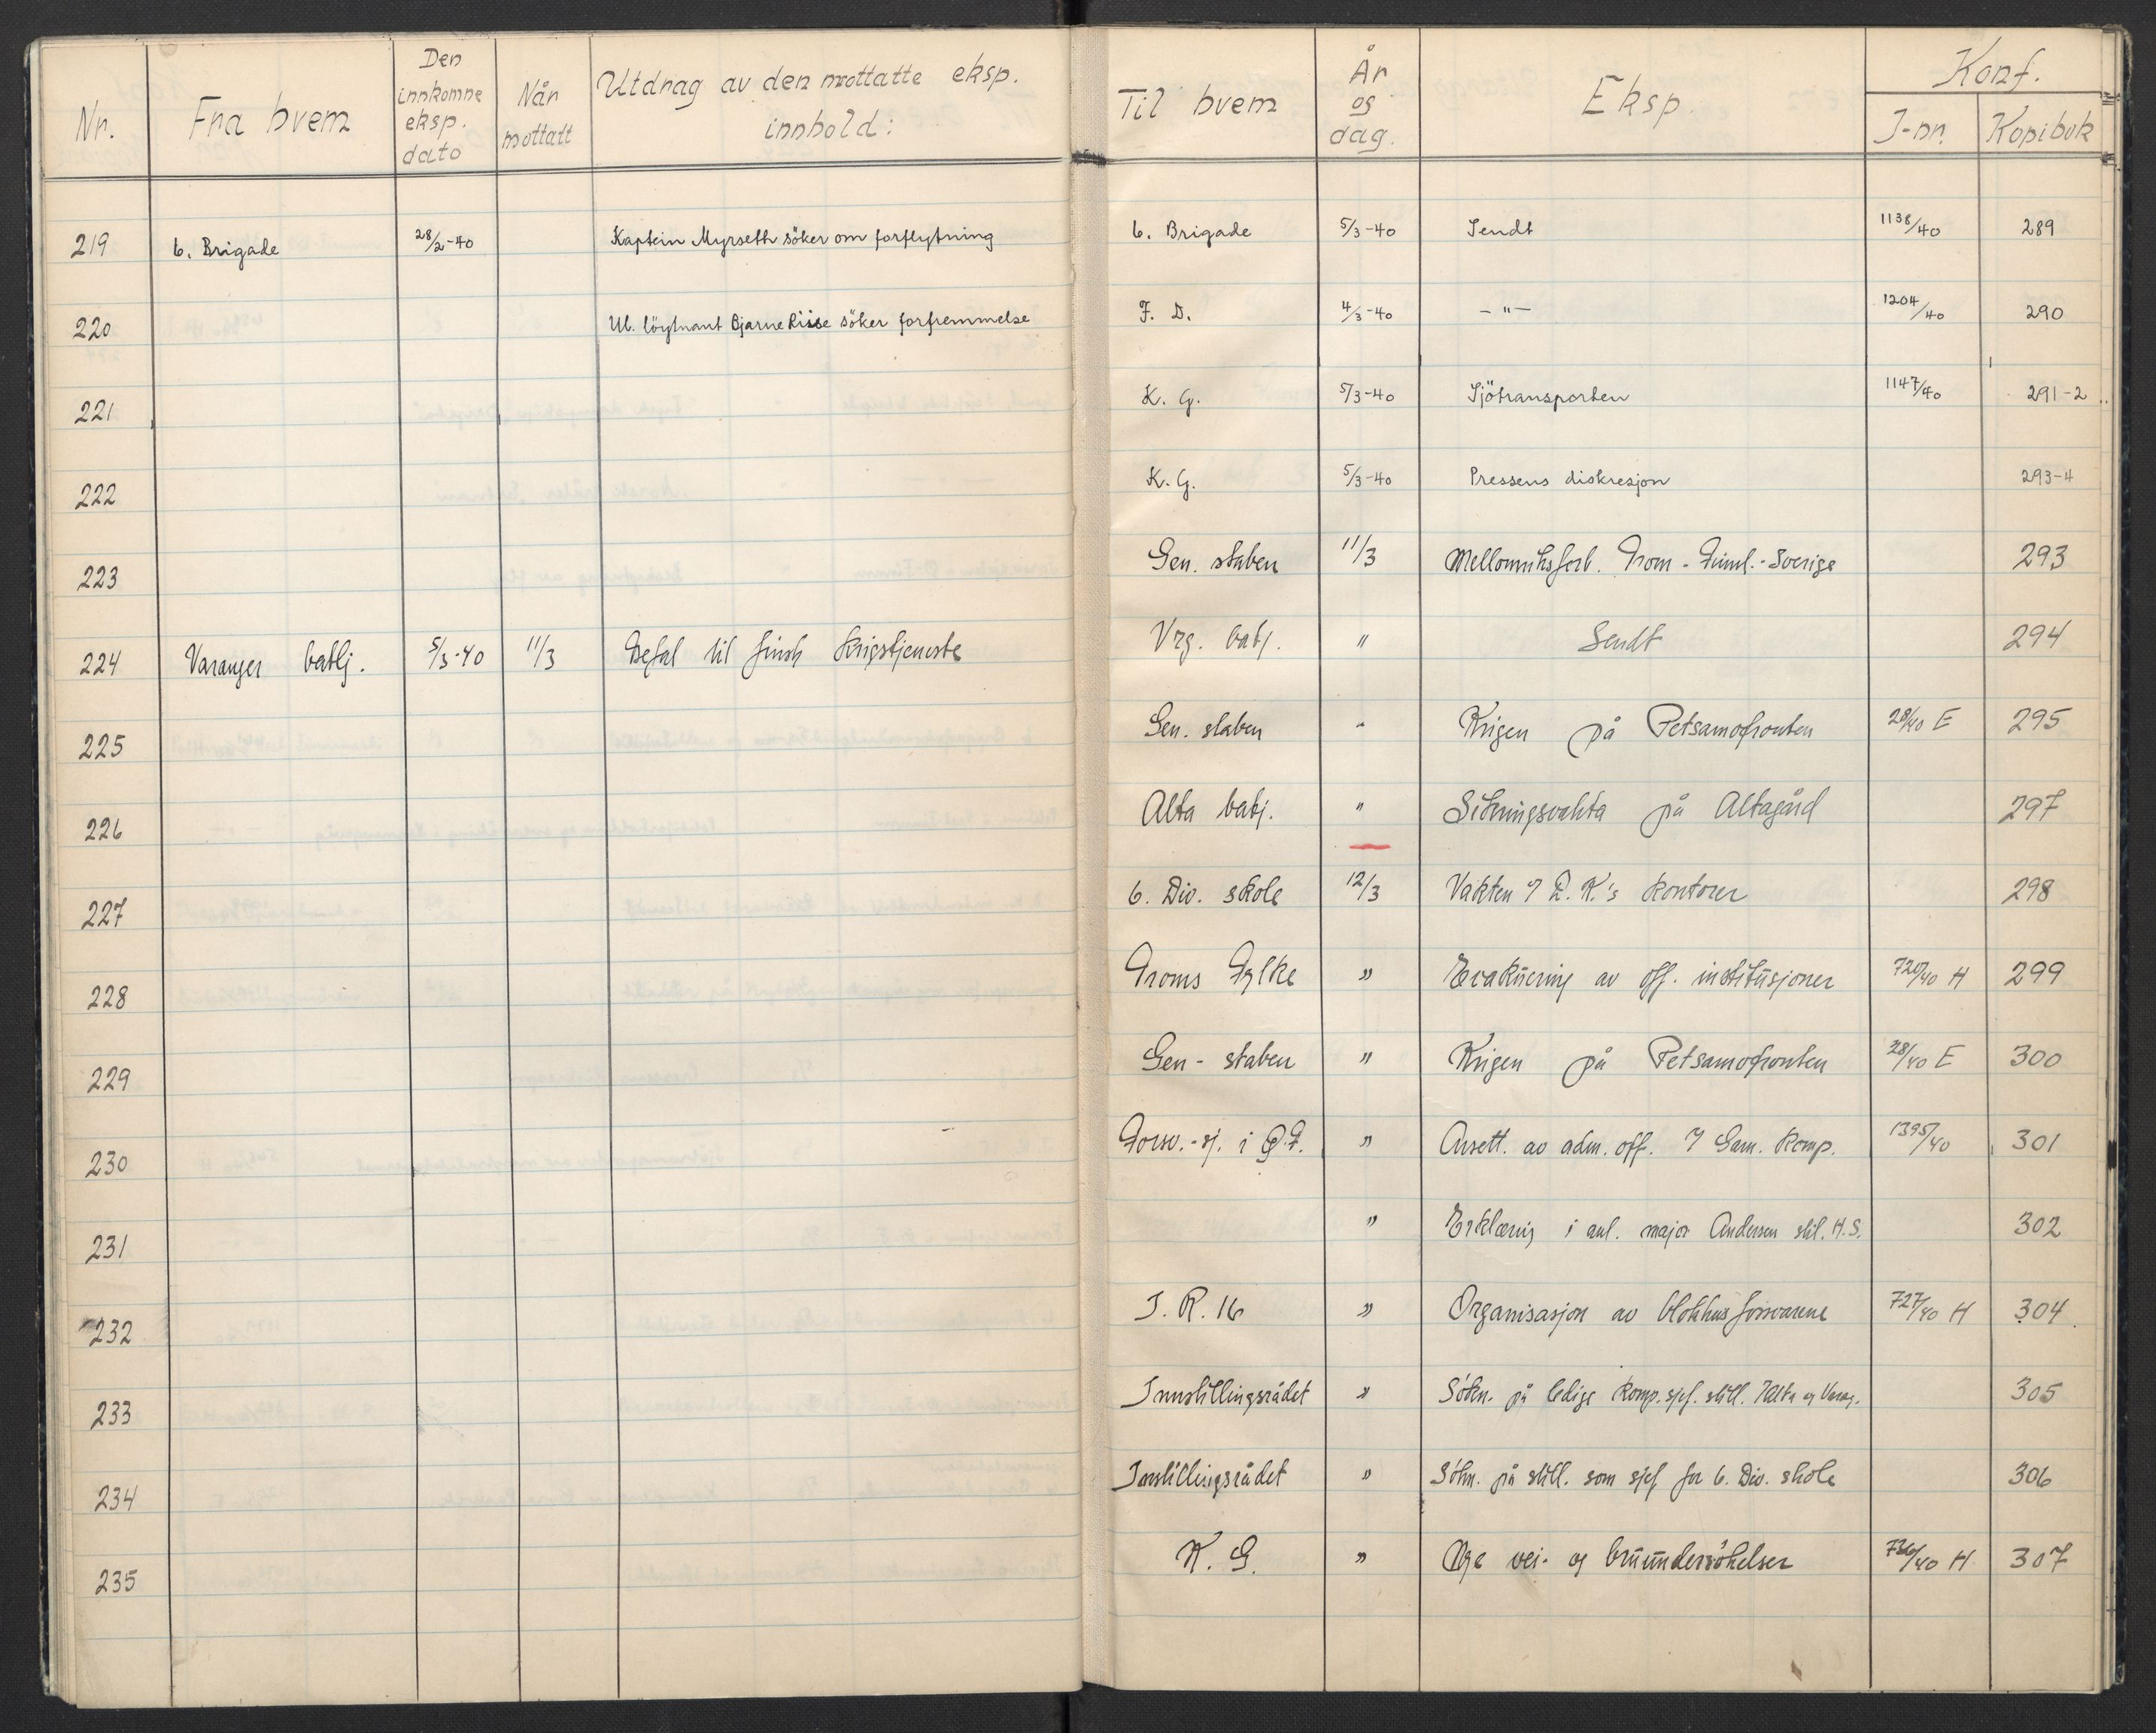 Nr. Fra hvem Den innkomne eksp. dato Når mottatt Utdrag av den mottatte eksp. innhold: Til hvem År og dag. Eksp. Konf. J-nr. Kopibok
219 6. Brigade 28/2-40 Kaptein Myrseth söker om forflytning 6. Brigade 5/3-40 Sendt 1138/40 289
220 Ul. löytnant Bjarne Riise söker forfremmelse F. D. 4/3-40 -"- 1204/40 290
221 K. G. 5/3-40 Sjötransporten 1147/40 291-2
222 K. G. 5/3-40 Pressens diskresjon 293-4
223 Gen. staben 11/3 Mellomriksforb. Trom - Finnl. - Sverige 293
224 Varanger batlj. 5/3-40 11/3 Befal til finsk krigstjeneste Vrg. batj. " Sendt 294
225 Gen. staben " Krigen på Petsamofronten 28/40 E 295
226 Alta batj. " Sikringsvakta på Altagård 297
227 6. Div. skole 12/3 Vakten i D. K.'s kontorer 298
228 Troms Fylke " Evakuering av off. institusjoner 720/40 H 299
229 Gen - staben " Krigen på Petsamofronten 28/40 E 300
230 Forsv.-sj. i Ø.F. " Ansett. av adm. off. i Garn. komp. 1395/40 301
231 " Erklæring i anl. major Andersen stil. H.S. 302
232 I. R. 16 " Organisasjon av blokkhusforsvarene 727/40 H 304
233 Innstillingsrådet " Sökn. på ledige komp. sjef. still. i Alta og Varag. 305
234 Instillingsrådet " Sökn. på still. som sjef for 6. Div. skole 306
235 K. G. " Nye vei- og bruundersökelser 736/40 H 307